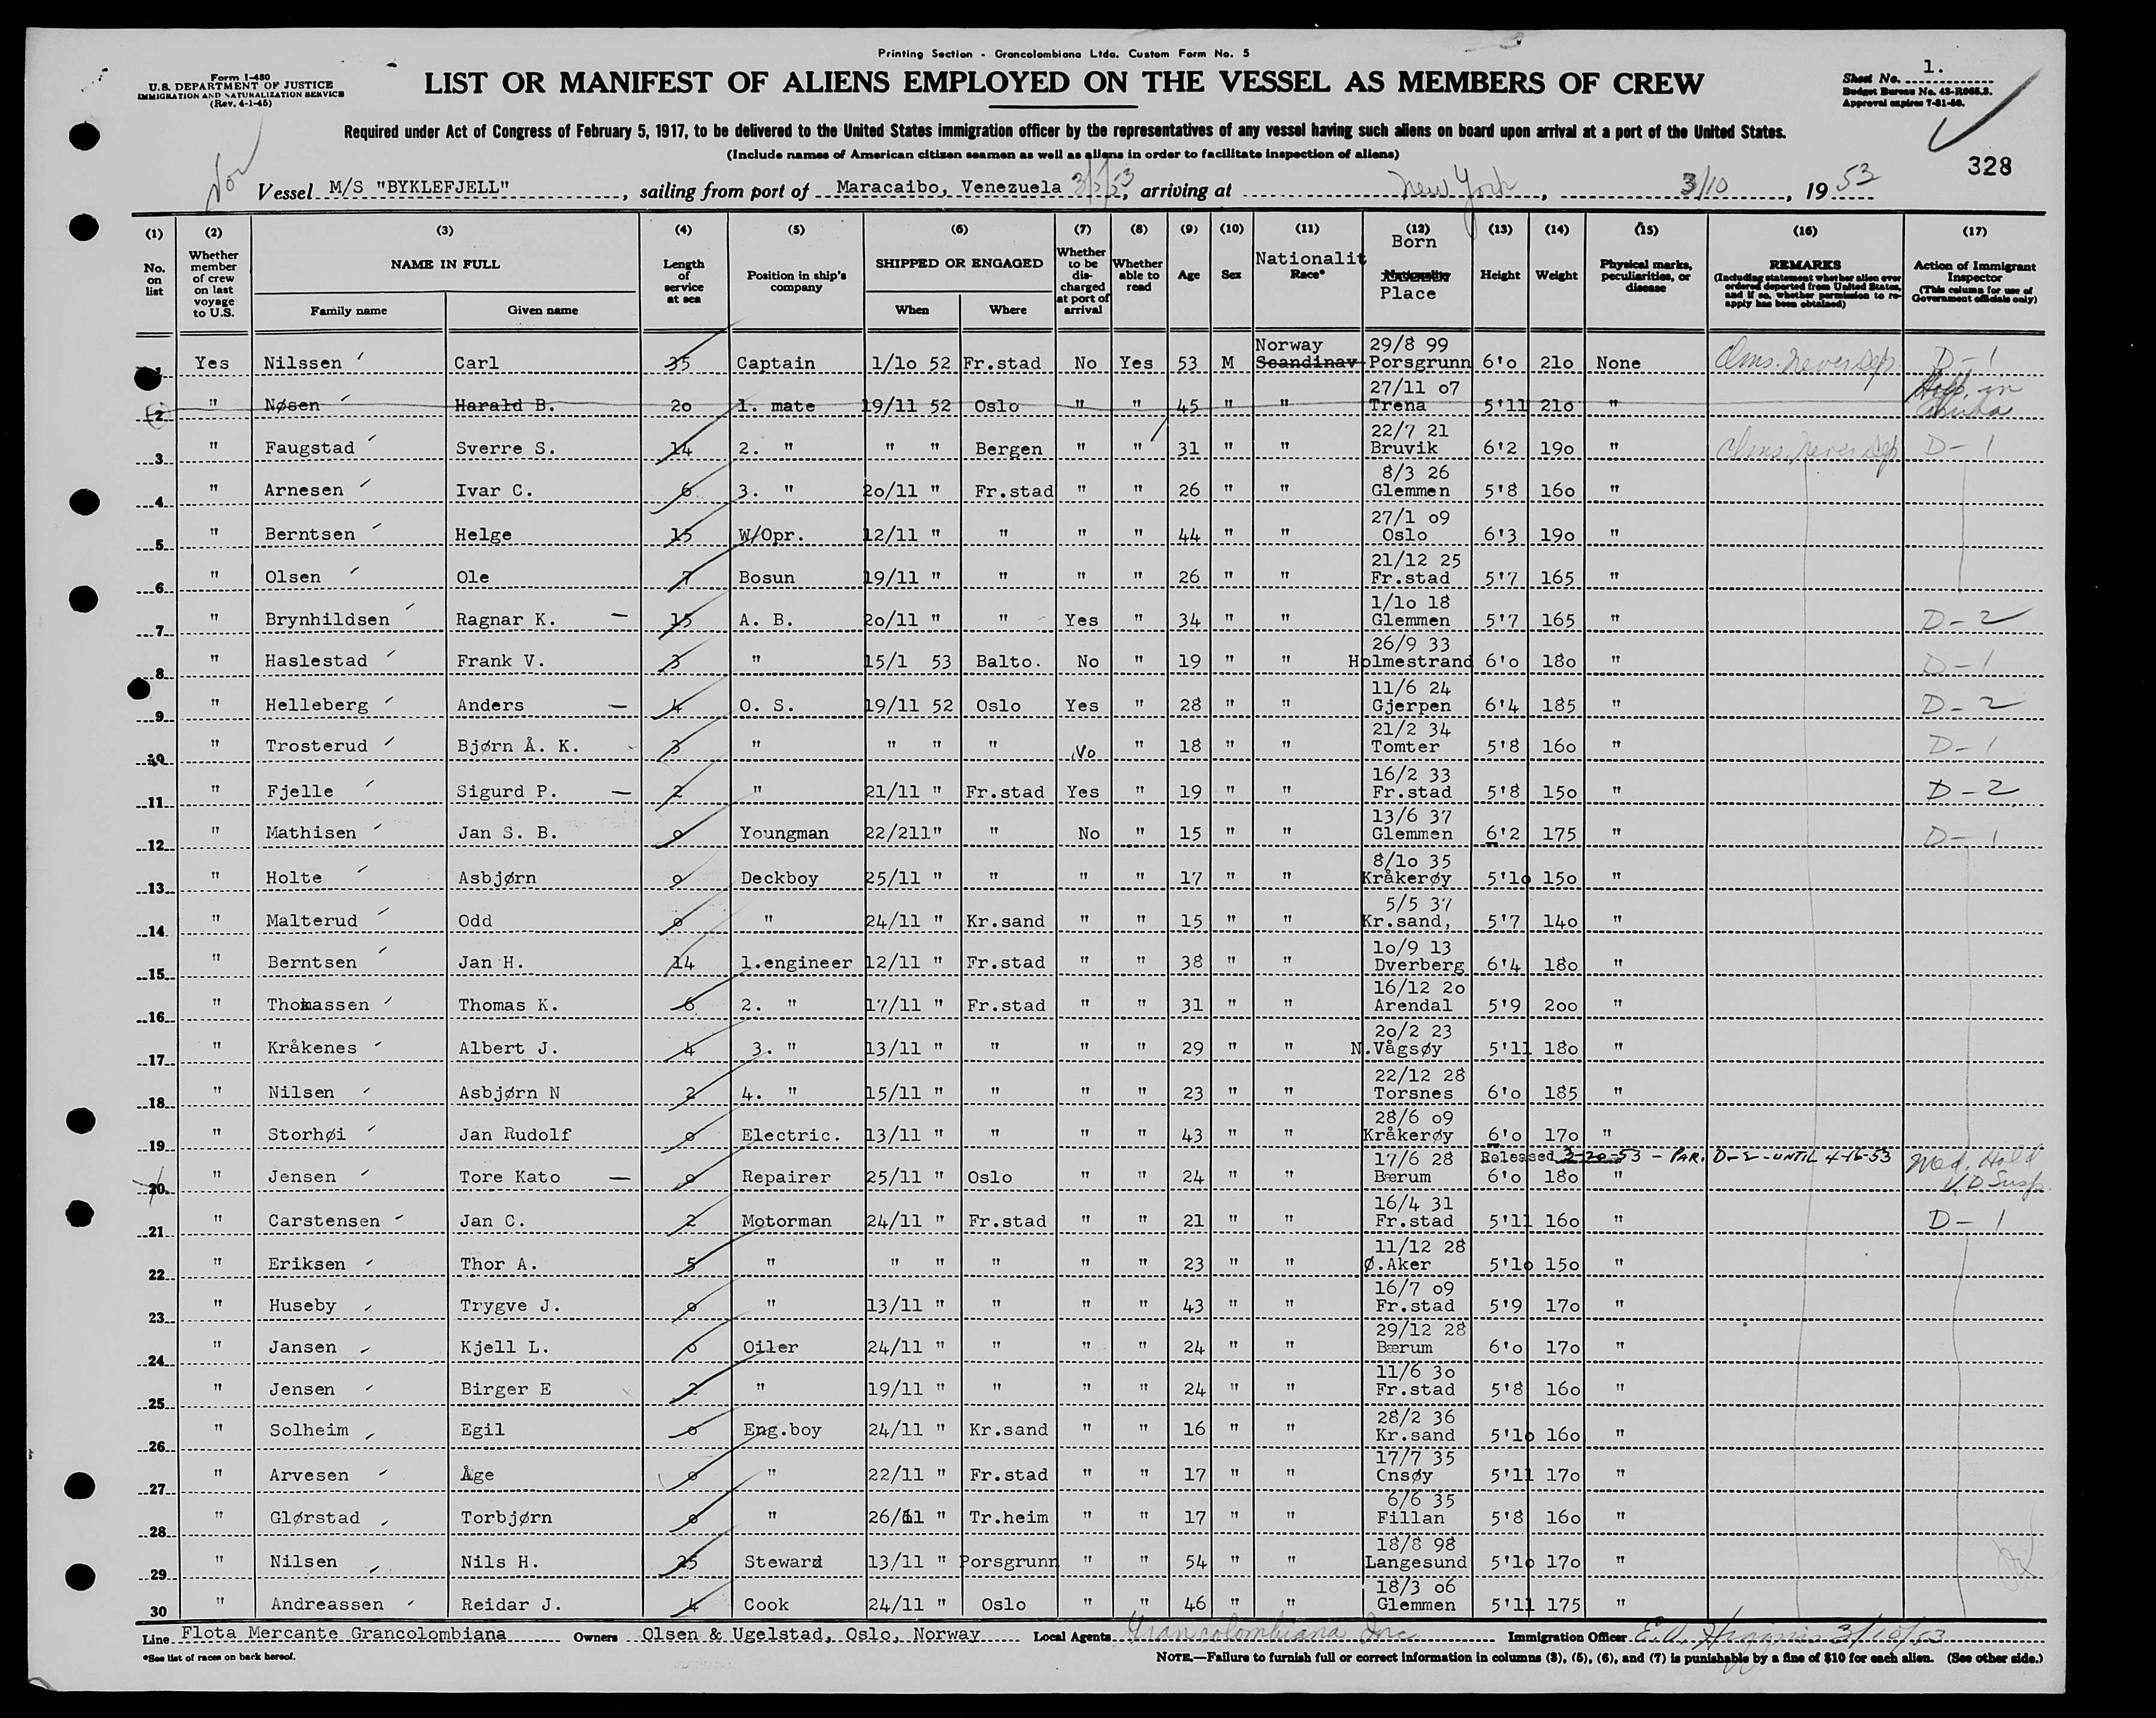 Printing Section - Grancolombiana Ltda. Custom Form No. 5
Form I-480
U.S. DEPARTMENT OF JUSTICE
IMMIGRATION AND NATURALIZATION SERVICE
(Rev. 4-1-45)
LIST OR MANIFEST OF ALIENS EMPLOYED ON THE VESSEL AS MEMBERS OF CREW
Sheet No. 1.
Budget Bureau No. 43-R065.3.
Approval expires 7-31-50.
Required under Act of Congress of February 5, 1917, to be delivered to the United States immigration officer by the representatives of any vessel having such aliens on board upon arrival at a port of the United States.
(Include names of American citizen seamen as well as aliens in order to facilitate inspection of aliens)
328
Nor
Vessel M/S "BYKLEFJELL", sailing from port of Maracaibo, Venezuela 3/5/53, arriving at New York, 3/10, 19 53
(1) (2) (3) (4) (5) (6) (7) (8) (9) (10) (11) (12) (13) (14) (15) (16) (17)
No. on list
Whether member of crew on last voyage to U.S.
NAME IN FULL
Family name Given name
Length of service at sea
Position in ship's company
SHIPPED OR ENGAGED
When Where
Whether to be discharged at port of arrival
Whether able to read
Age
Sex
Nationalit
Race*
Born
Nationality
Place
Height
Weight
Physical marks, peculiarities, or disease
REMARKS
(Including statement whether alien ever ordered deported from United States, and if so, whether permission to reapply has been obtained)
Action of Immigrant Inspector
(This column for use of Government officials only)
1 Yes Nilssen Carl 35 Captain 1/1o 52 Fr.stad No Yes 53 M Norway Scandinav 29/8 99 Porsgrunn 6'o 21o None Clms. never dep D-1
2 " Nøsen Harald B. 2o 1. mate 19/11 52 Oslo " " 45 " " 27/11 o7 Trena 5'11 21o "
3 " Faugstad Sverre S. 14 2. " " " Bergen " " 31 " " 22/7 21 Bruvik 6'2 19o " Clms. never dep D-1
4 " Arnesen Ivar C. 6 3. " 2o/11 " Fr.stad " " 26 " " 8/3 26 Glemmen 5'8 16o "
5 " Berntsen Helge 15 W/Opr. 12/11 " " " " 44 " " 27/1 o9 Oslo 6'3 19o "
6 " Olsen Ole 7 Bosun 19/11 " " " " 26 " " 21/12 25 Fr.stad 5'7 165 "
7 " Brynhildsen Ragnar K. — 15 A. B. 2o/11 " " Yes " 34 " " 1/1o 18 Glemmen 5'7 165 " D-2
8 " Haslestad Frank V. 3 " 15/1 53 Balto. No " 19 " " 26/9 33 Holmestrand 6'o 18o " D-1
9 " Helleberg Anders — 4 O. S. 19/11 52 Oslo Yes " 28 " " 11/6 24 Gjerpen 6'4 185 " D-2
10 " Trosterud Bjørn Å. K. 3 " " " " No " 18 " " 21/2 34 Tomter 5'8 16o " D-1
11 " Fjelle Sigurd P. — 2 " 21/11 " Fr.stad Yes " 19 " " 16/2 33 Fr.stad 5'8 15o " D-2
12 " Mathisen Jan S. B. o Youngman 22/211" " No " 15 " " 13/6 37 Glemmen 6'2 175 " D-1
13 " Holte Asbjørn o Deckboy 25/11 " " " " 17 " " 8/1o 35 Kråkerøy 5'1o 15o "
14 " Malterud Odd o " 24/11 " Kr.sand " " 15 " " 5/5 37 Kr.sand, 5'7 14o "
15 " Berntsen Jan H. 14 1.engineer 12/11 " Fr.stad " " 38 " " 1o/9 13 Dverberg 6'4 18o "
16 " Thomassen Thomas K. 6 2. " 17/11 " Fr.stad " " 31 " " 16/12 2o Arendal 5'9 2oo "
17 " Kråkenes Albert J. 4 3. " 13/11 " " " " 29 " " 2o/2 23 N.Vågsøy 5'11 18o "
18 " Nilsen Asbjørn N 2 4. " 15/11 " " " " 23 " " 22/12 28 Torsnes 6'o 185 "
19 " Storhøi Jan Rudolf o Electric. 13/11 " " " " 43 " " 28/6 o9 Kråkerøy 6'o 17o "
Released 3-20-53 - PAR. D-2 - UNTIL 4-16-53
20 " Jensen Tore Kato — o Repairer 25/11 " Oslo " " 24 " " 17/6 28 Bærum 6'o 18o " Med. Hold V.D. Susp.
21 " Carstensen Jan C. 2 Motorman 24/11 " Fr.stad " " 21 " " 16/4 31 Fr.stad 5'11 16o " D-1
22 " Eriksen Thor A. 5 " " " " " " 23 " " 11/12 28 Ø.Aker 5'1o 15o "
23 " Huseby Trygve J. o " 13/11 " " " " 43 " " 16/7 o9 Fr.stad 5'9 17o "
24 " Jansen Kjell L. o Oiler 24/11 " " " " 24 " " 29/12 28 Bærum 6'o 17o "
25 " Jensen Birger E 2 " 19/11 " " " " 24 " " 11/6 3o Fr.stad 5'8 16o "
26 " Solheim Egil o Eng.boy 24/11 " Kr.sand " " 16 " " 28/2 36 Kr.sand 5'1o 16o "
27 " Arvesen Åge o " 22/11 " Fr.stad " " 17 " " 17/7 35 Onsøy 5'11 17o "
28 " Glørstad Torbjørn o " 26/11 " Tr.heim " " 17 " " 6/6 35 Fillan 5'8 16o "
29 " Nilsen Nils H. 25 Steward 13/11 " Porsgrunn " " 54 " " 18/8 98 Langesund 5'1o 17o "
30 " Andreassen Reidar J. 4 Cook 24/11 " Oslo " " 46 " " 18/3 o6 Glemmen 5'11 175 "
Line Flota Mercante Grancolombiana Owners Olsen & Ugelstad, Oslo, Norway Local Agents Grancolombiana Inc. Immigration Officer E.A. Higgins 3/10/53
*See list of races on back hereof.
NOTE.—Failure to furnish full or correct information in columns (3), (5), (6), and (7) is punishable by a fine of $10 for each alien. (See other side.)